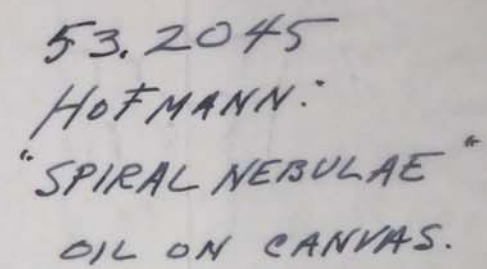 53.2045
HOFMANN:
"SPIRAL NEBULAE"
OIL ON CANVAS.